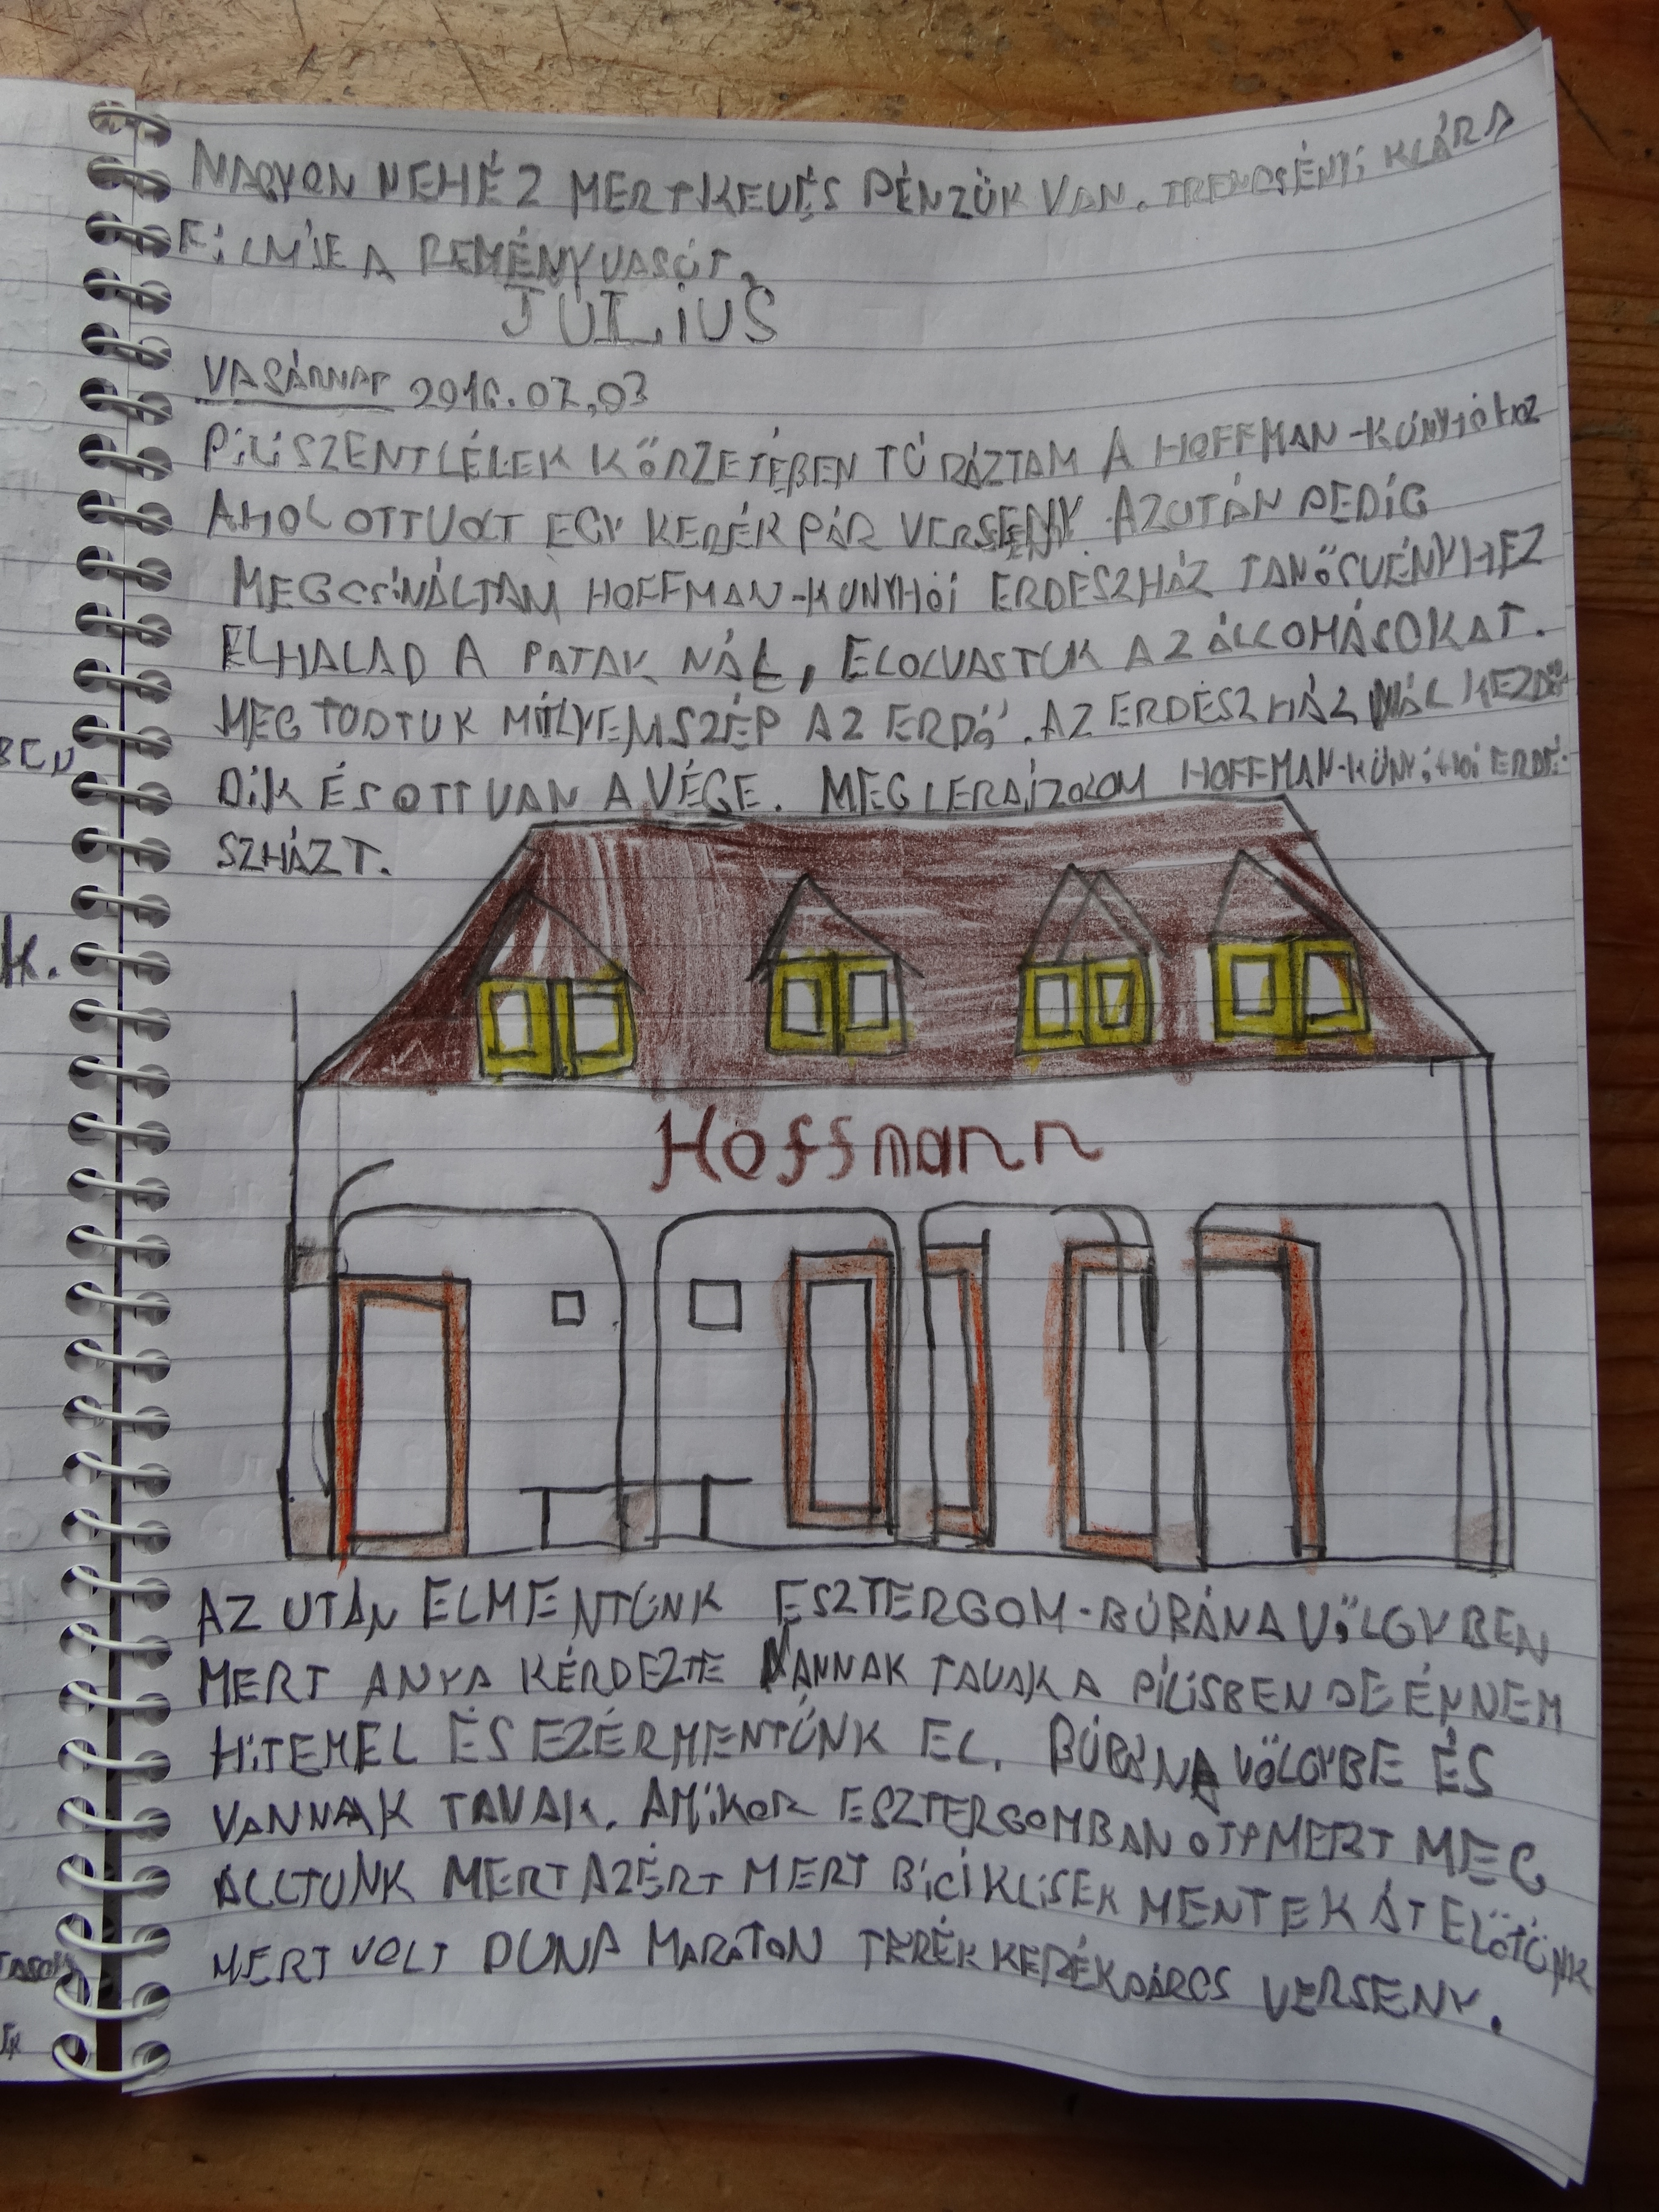 NAGYON NEHÉZ MERT KEVÉS PÉNZÜK VAN. TRENCSÉNYI KLÁRA
FILMJE A REMÉNYVASÚT.
JÚLIUS
VASÁRNAP 2016.07,03
PILISZENTLÉLEK KÖRZETÉBEN TÚRÁZTAM A HOFFMAN-KUNYHÓHOZ
AHOL OTTVOLT EGY KERÉKPÁR VERSENY. AZUTÁN PEDIG
MEGCSINÁLTAM HOFFMAN-KUNYHÓI ERDÉSZHÁZ TANÖSVÉNYHEZ
ELHALAD A PATAK NÁL, ELOLVASTUK AZ ÁLLOMÁSOKAT.
MEG TUDTUK MILYEN SZÉP AZ ERDŐ. AZ ERDÉSZHÁZ NÁL KEZDŐ
DIK ÉS OTT VAN A VÉGE. MEG LERAJZOLOM HOFFMAN-KUNYHÓI ERDÉ-
SZHÁZT.
Hoffmann
AZ UTÁN ELMENTÜNK ESZTERGOM-BÚBÁNAVÖLGYBEN
MERT ANYA KÉRDEZTE VANNAK TAVAK A PILISBEN DE ÉN NEM
HITEMEL ÉS EZÉRMENTÜNK EL. BÚBÁNAVÖLGYBE ÉS
VANNAK TAVAK. AMIKOR ESZTERGOMBAN MERT MEG
ALLTUNK MERT AZÉRT MERT BICIKLISEK MENTEK ÁT ELŐTÜNK
MERT VOLT DUNA MARATON TERÉKKERÉKPÁROS VERSENY.